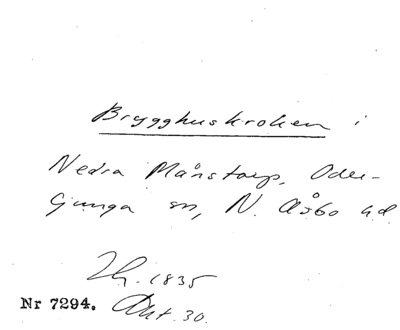 Brygghuskroken i
Nedra Månstorp, Oder-
ljunga sn, N. Åsbo hd
1835
Nr 7294. Akt. 30.